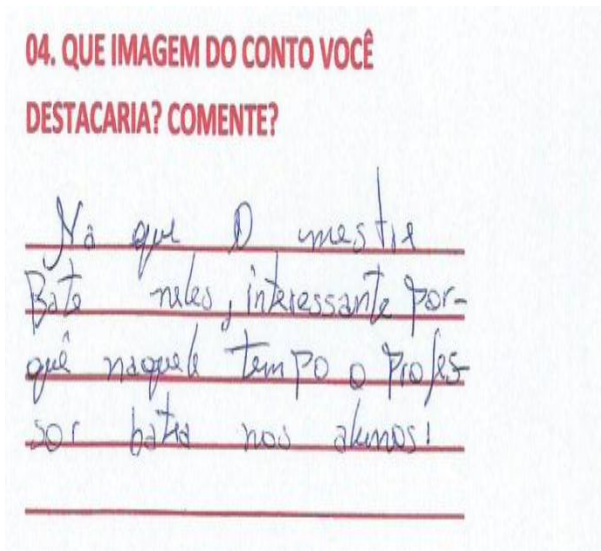 04. QUE IMAGEM DO CONTO VOCÊ
DESTACARIA? COMENTE?
Na que O mestre
Bate neles, interessante por-
quê naquele tempo o profes-
sor batia nos alunos!